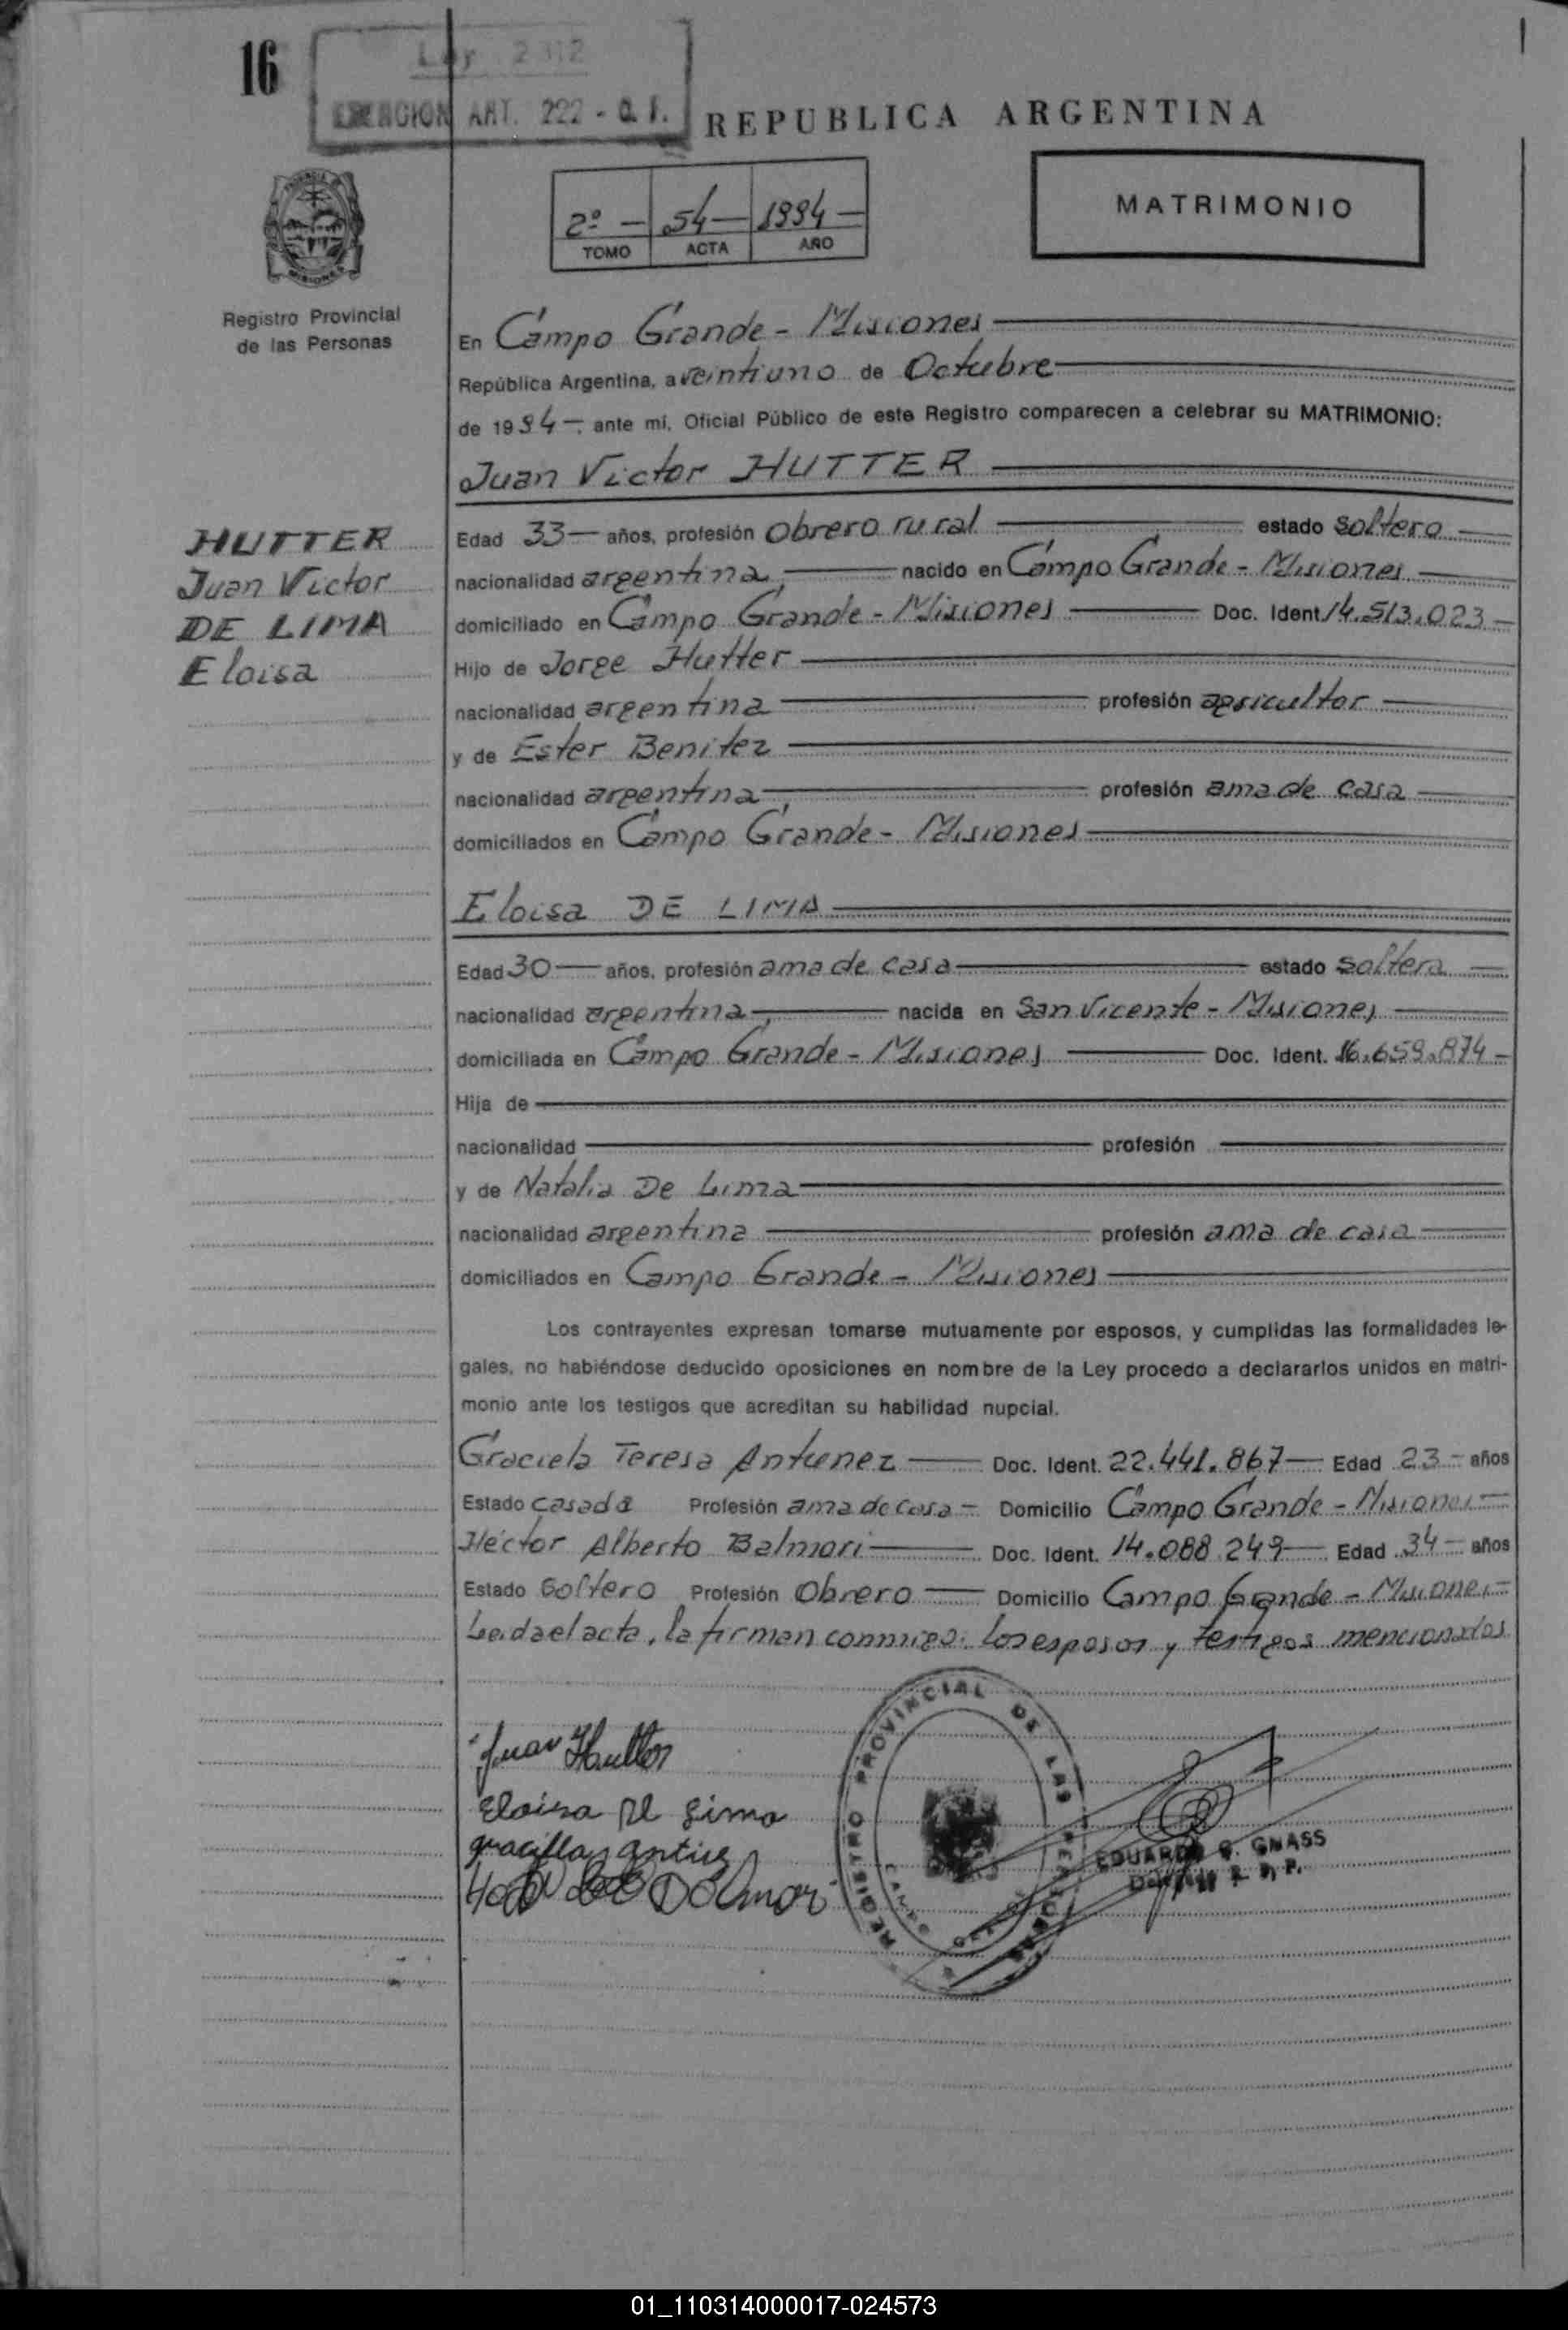 16
Ley 2312
EXENCION ART. 222 - C. F.
REPUBLICA ARGENTINA
2º — 54 — 1994 —
TOMO ACTA AÑO
MATRIMONIO
MISIONES
Registro Provincial
de las Personas
En Campo Grande - Misiones
República Argentina, a veintiuno de Octubre
de 1994 — ante mí, Oficial Público de este Registro comparecen a celebrar su MATRIMONIO:
Juan Victor HUTTER
HUTTER
Juan Victor
DE LIMA
Eloisa
Edad 33 — años, profesión obrero rural estado soltero
nacionalidad argentina nacido en Campo Grande - Misiones
domiciliado en Campo Grande - Misiones Doc. Ident 14.513.023 —
Hijo de Jorge Hutter
nacionalidad argentina profesión agricultor
y de Ester Benitez
nacionalidad argentina profesión ama de casa
domiciliados en Campo Grande - Misiones
Eloisa DE LIMA
Edad 30 — años, profesión ama de casa estado soltera
nacionalidad argentina nacida en San Vicente - Misiones
domiciliada en Campo Grande - Misiones Doc. Ident. 16.659.874 —
Hija de
nacionalidad profesión
y de Natalia De Lima
nacionalidad argentina profesión ama de casa
domiciliados en Campo Grande - Misiones
Los contrayentes expresan tomarse mutuamente por esposos, y cumplidas las formalidades le-
gales, no habiéndose deducido oposiciones en nombre de la Ley procedo a declararlos unidos en matri-
monio ante los testigos que acreditan su habilidad nupcial.
Graciela Teresa Antunez — Doc. Ident. 22.441.867 — Edad 23 — años
Estado casada Profesión ama de casa — Domicilio Campo Grande - Misiones
Héctor Alberto Balmori — Doc. Ident. 14.088.249 — Edad 34 — años
Estado Soltero Profesión Obrero — Domicilio Campo Grande - Misiones
Leida el acta, la firman conmigo, los esposos y testigos mencionados
Juan Hutter
Eloisa De Lima
REGISTRO PROVINCIAL DE LAS PERSONAS
EDUARDO G. GNASS
01_110314000017-024573